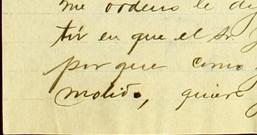 me ordeno le di
tir en que el Sr
por que como
molido, quier